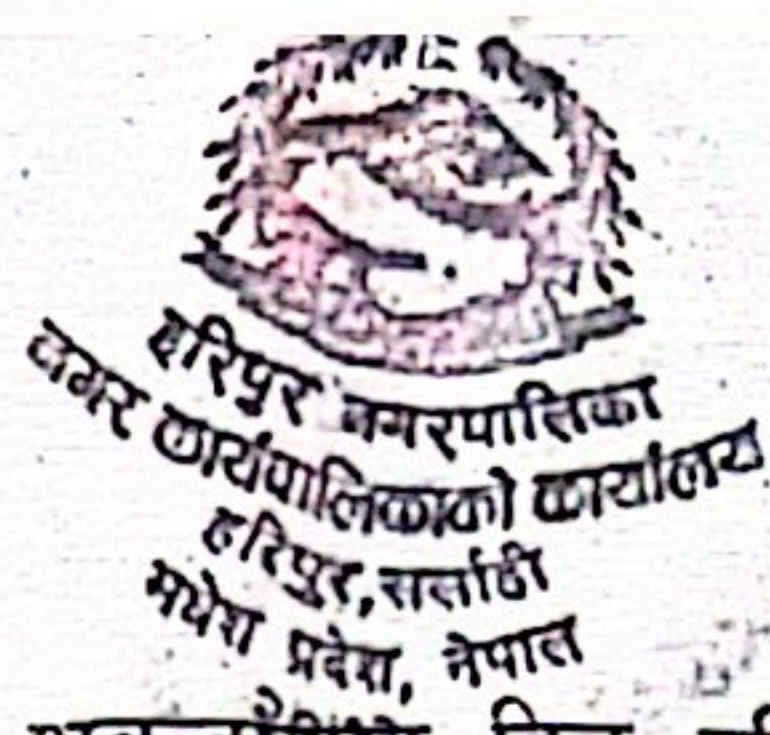 हरिपुर नगरपालिका
नगर कार्यपालिकाको कार्यालय
हरिपुर,सर्लाही
मधेश प्रदेश, नेपाल